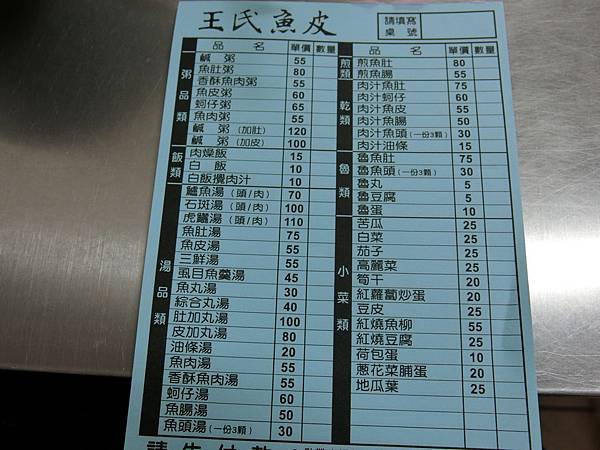 王氏魚皮
請填寫
桌號
品名 單價 數量
粥品類
鹹粥 55
魚肚粥 80
香酥魚肉粥 55
魚皮粥 60
蚵仔粥 65
魚肉粥 55
鹹粥(加肚) 120
鹹粥(加皮) 100
飯類
肉燥飯 15
白飯 10
白飯攪肉汁 10
湯品類
鱸魚湯(頭/肉) 70
石斑湯(頭/肉) 100
虎鱺湯(頭/肉) 110
魚肚湯 75
魚皮湯 55
三鮮湯 55
虱目魚羹湯 45
魚丸湯 30
綜合丸湯 40
肚加丸湯 100
皮加丸湯 80
油條湯 20
魚肉湯 55
香酥魚肉湯 55
蚵仔湯 60
魚腸湯 50
魚頭湯(一份3顆) 30
品名 單價 數量
煎類
煎魚肚 80
煎魚腸 55
乾類
肉汁魚肚 75
肉汁蚵仔 60
肉汁魚皮 55
肉汁魚腸 50
肉汁魚頭(一份3顆) 30
肉汁油條 15
魯類
魯魚肚 75
魯魚頭(一份3顆) 30
魯丸 5
魯豆腐 5
魯蛋 10
小菜類
苦瓜 25
白菜 25
茄子 25
高麗菜 25
筍干 20
紅蘿蔔炒蛋 20
豆皮 25
紅燒魚柳 55
紅燒豆腐 25
荷包蛋 10
蔥花菜脯蛋 20
地瓜葉 25